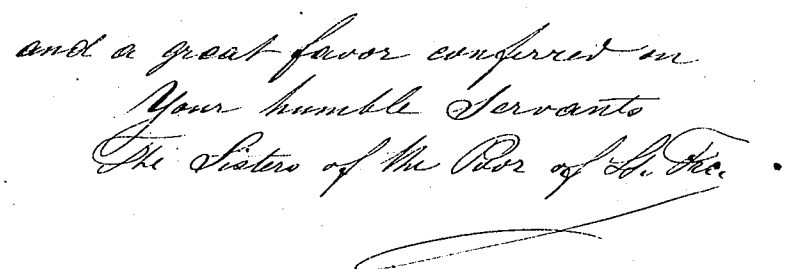 and a great favor conferred on
Your humble Servants
The Sisters of the Poor of St. Frc.